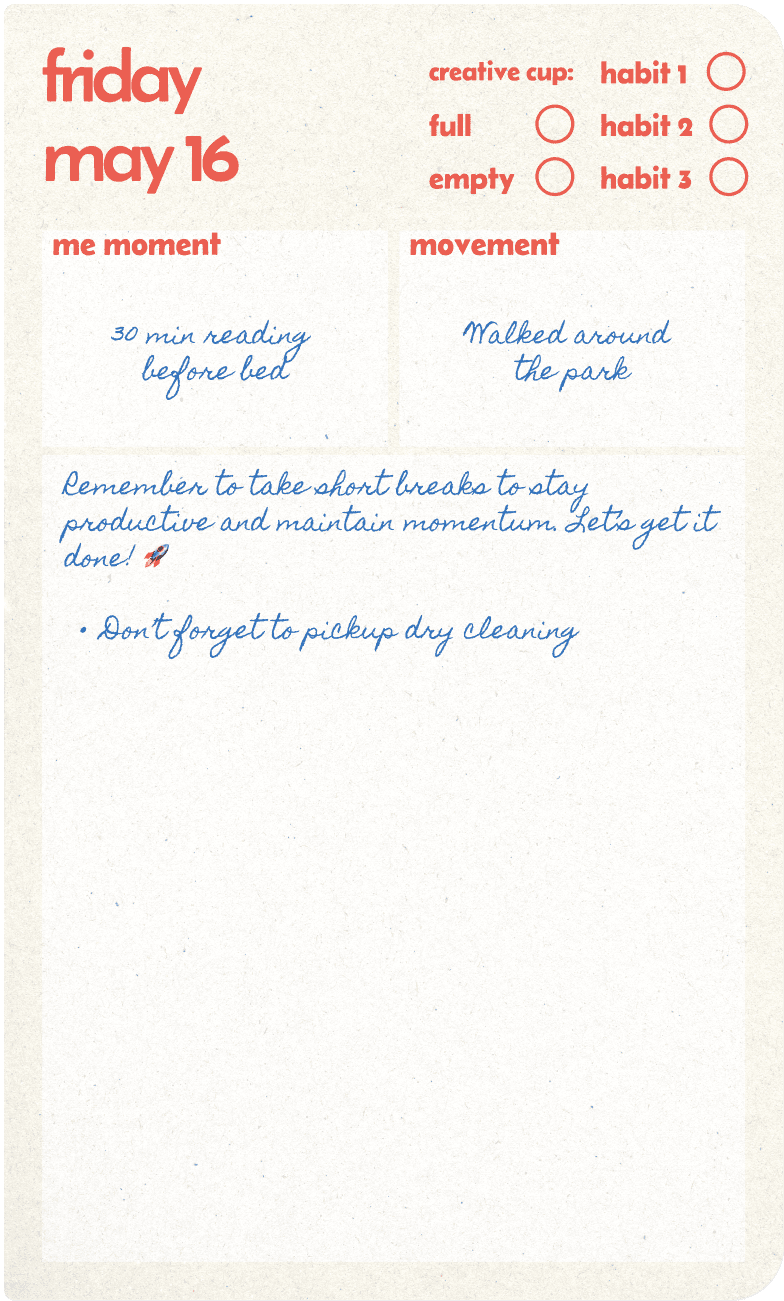 friday
may 16
creative cup:
full
empty
habit 1
habit 2
habit 3
me moment
30 min reading
before bed
movement
Walked around
the park
Remember to take short breaks to stay
productive and maintain momentum. Let's get it
done! 🚀
• Don't forget to pickup dry cleaning